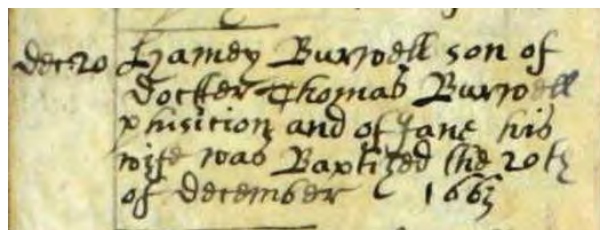 dec 20 Hamey Burwell son of
docter Thomas Burwell
phisition and of Jane his
wife was Baptized the 20th
of december 1663